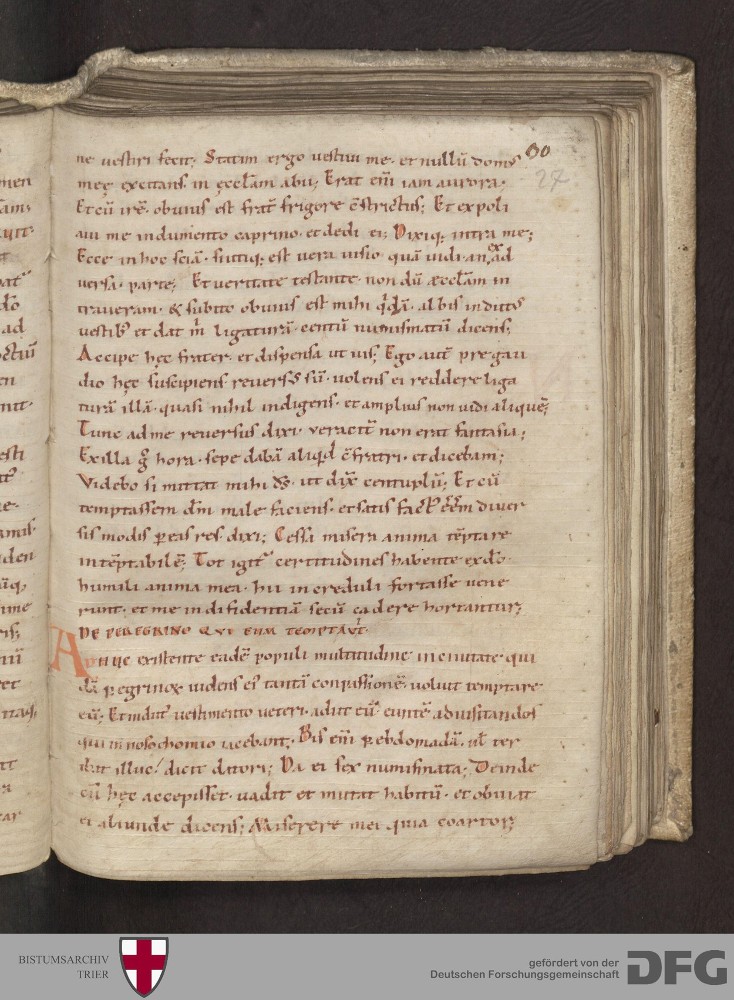 ne uestiri fecit; Statim ergo uestiui me· et nullū domꝰ
meę excitans· in ęccl̄am abii; Erat eni̅ iam aurora;
Et cū irē· obuius est frat̄ frigore c̄strictus; Et expoli
aui me indumento caprino· et dedi ei; Dixiq; intra me;
Ecce in hoc sciā· si utiq; est uera uisio· quā uidi· an ex ad
uersa parte; Et ueritate testante· non dū æccl̄am in
traueram· & subito obuius est mihi q̄dā· albis indutꝰ
uestibꝰ et dat m̄ ligaturā· centū numismatū dicens;
Accipe hęc frater· et dispensa ut uis; Ego aut̄ pre gau
dio hęc suscipiens reuersꝰ sū· uolens ei reddere liga
turā illā· quasi nihil indigens· et amplius non uidi aliquē;
Tunc ad me reuersus dixi· ueracit̄ non erat fantasia;
Ex illa g̊ hora· sepe dabā aliqd̄ c̄fratri· et dicebam;
Videbo si mittat mihi dꝰ· ut dix̄ centuplū; Et cū
temptassem dn̄m male faciens· et satis factꝰ eēm diuer
sis modis ꝑ eas res· dixi; Cessa misera anima tēptare
intēptabilē; Tot igit̄ certitudines habente ex dō
humili anima mea· hii increduli fortasse uene
runt· et me in difidentiā secū cadere hortantur;
DE PEREGRINO QVI EUM TEMPTAVIT·
Adhuc existente eadē populi multitudine in ciuitate· qui
dā ꝑegrinoꝝ uidens eiꝰ tantā conpassionē· uoluit temptare
eū; Et indutꝰ uestimento ueteri· adiit eū eunte̅ ad uisitandos
qui in nosochomio iacebant; Bis eni̅ ꝑ ebdomadā· ul̄ ter
ibat illuc/ dicit datori; Da ei sex numismata; Deinde
cū hęc accepisset· uadit et mutat habitū· et obuiat
ei aliunde dicens; Miserere mei quia coartor;
30
27
BISTUMSARCHIV
TRIER
gefördert von der
Deutschen Forschungsgemeinschaft
DFG